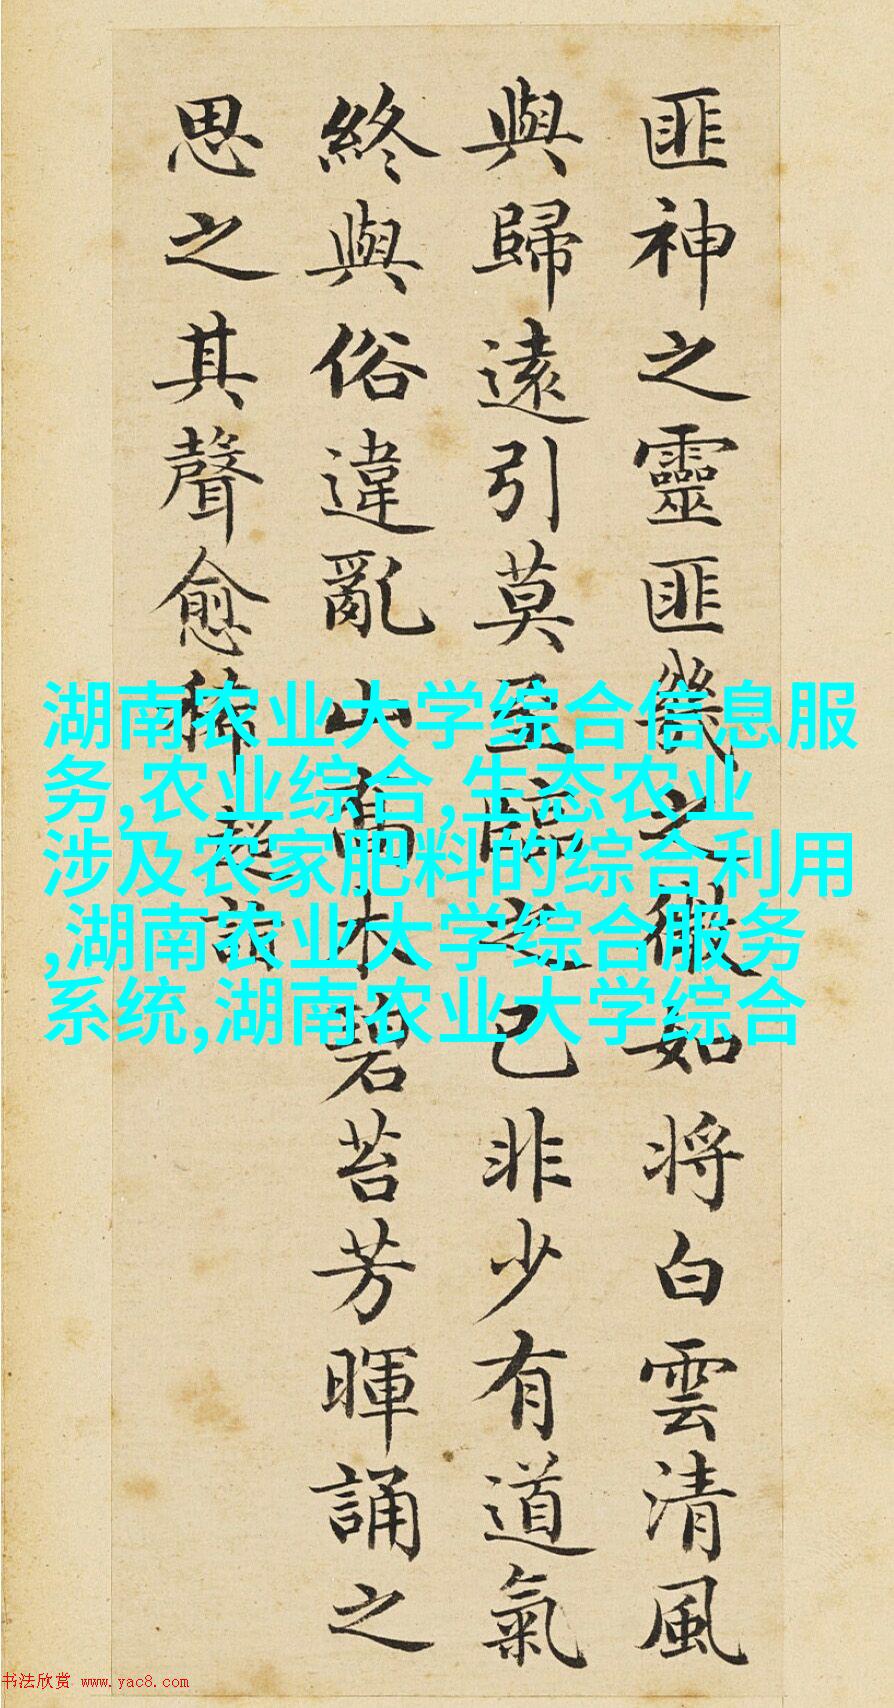 匪神之靈匪幾之微如將白雲清風
與歸遠引莫至臨之已非少有道氣
終與俗違亂山高木碧苔芳暉誦之
思之其聲愈稀超詣
湖南农业大学综合信息服
务,农业综合,生态农业
涉及农家肥料的综合利用
,湖南农业大学综合服务
系统,湖南农业大学综合
书法欣赏 www.yac8.com